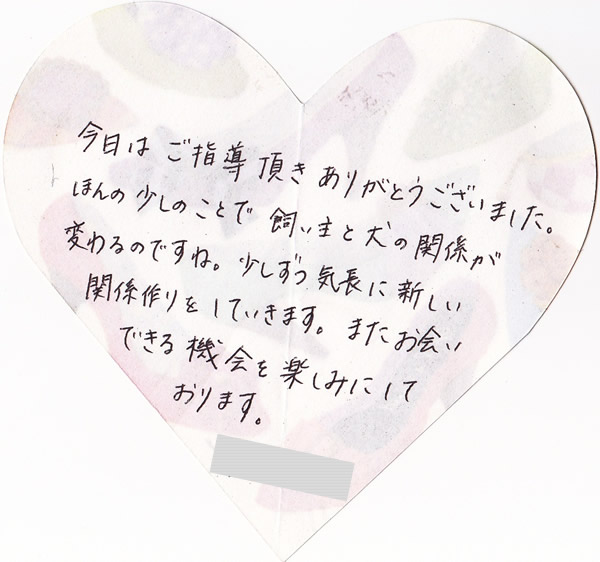 今日は ご指導 頂き ありがとうございました。
ほんの少しのことで 飼い主と犬の関係が
変わるのですね。少しずつ気長に新しい
関係作りをしていきます。またお会い
できる機会を楽しみにして
おります。